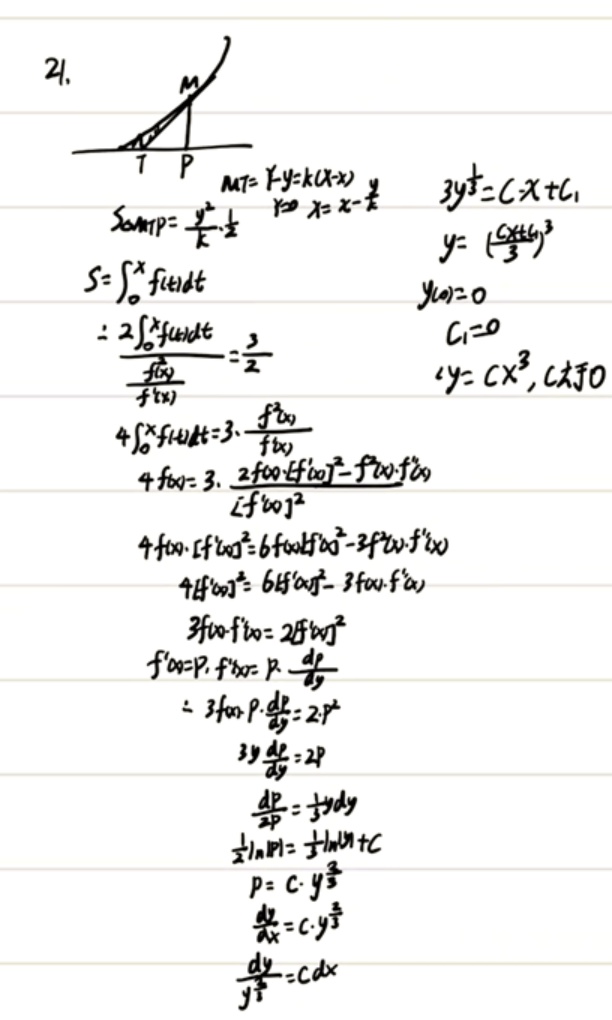 21.
M
T P
MT= Y-y=k(X-x)
Y=0 X= x-\frac{y}{k}
S_{△MTP}= \frac{y^2}{k}·\frac{1}{2}
S=∫_0^x f(t)dt
∴ \frac{2∫_0^x f(t)dt}{\frac{f^2(x)}{f'(x)}}=\frac{3}{2}
4∫_0^x f(t)dt=3·\frac{f^2(x)}{f'(x)}
4f(x)=3·\frac{2f(x)·[f'(x)]^2-f^2(x)·f''(x)}{[f'(x)]^2}
4f(x)·[f'(x)]^2=6f(x)[f'(x)]^2-3f^2(x)·f''(x)
4[f'(x)]^2=6[f'(x)]^2-3f(x)·f''(x)
3f(x)·f''(x)=2[f'(x)]^2
f'(x)=p, f''(x)=p·\frac{dp}{dy}
∴ 3f(x)·p·\frac{dp}{dy}=2·p^2
3y\frac{dp}{dy}=2p
\frac{dp}{2p}=\frac{1}{3}ydy
\frac{1}{2}ln|p|=\frac{1}{3}ln|y|+C
p=C·y^{\frac{2}{3}}
\frac{dy}{dx}=C·y^{\frac{2}{3}}
\frac{dy}{y^{\frac{2}{3}}}=Cdx
3y^{\frac{1}{3}}=C·x+C_1
y=(\frac{Cx+C_1}{3})^3
y(0)=0
C_1=0
∴y=Cx^3, C大于0